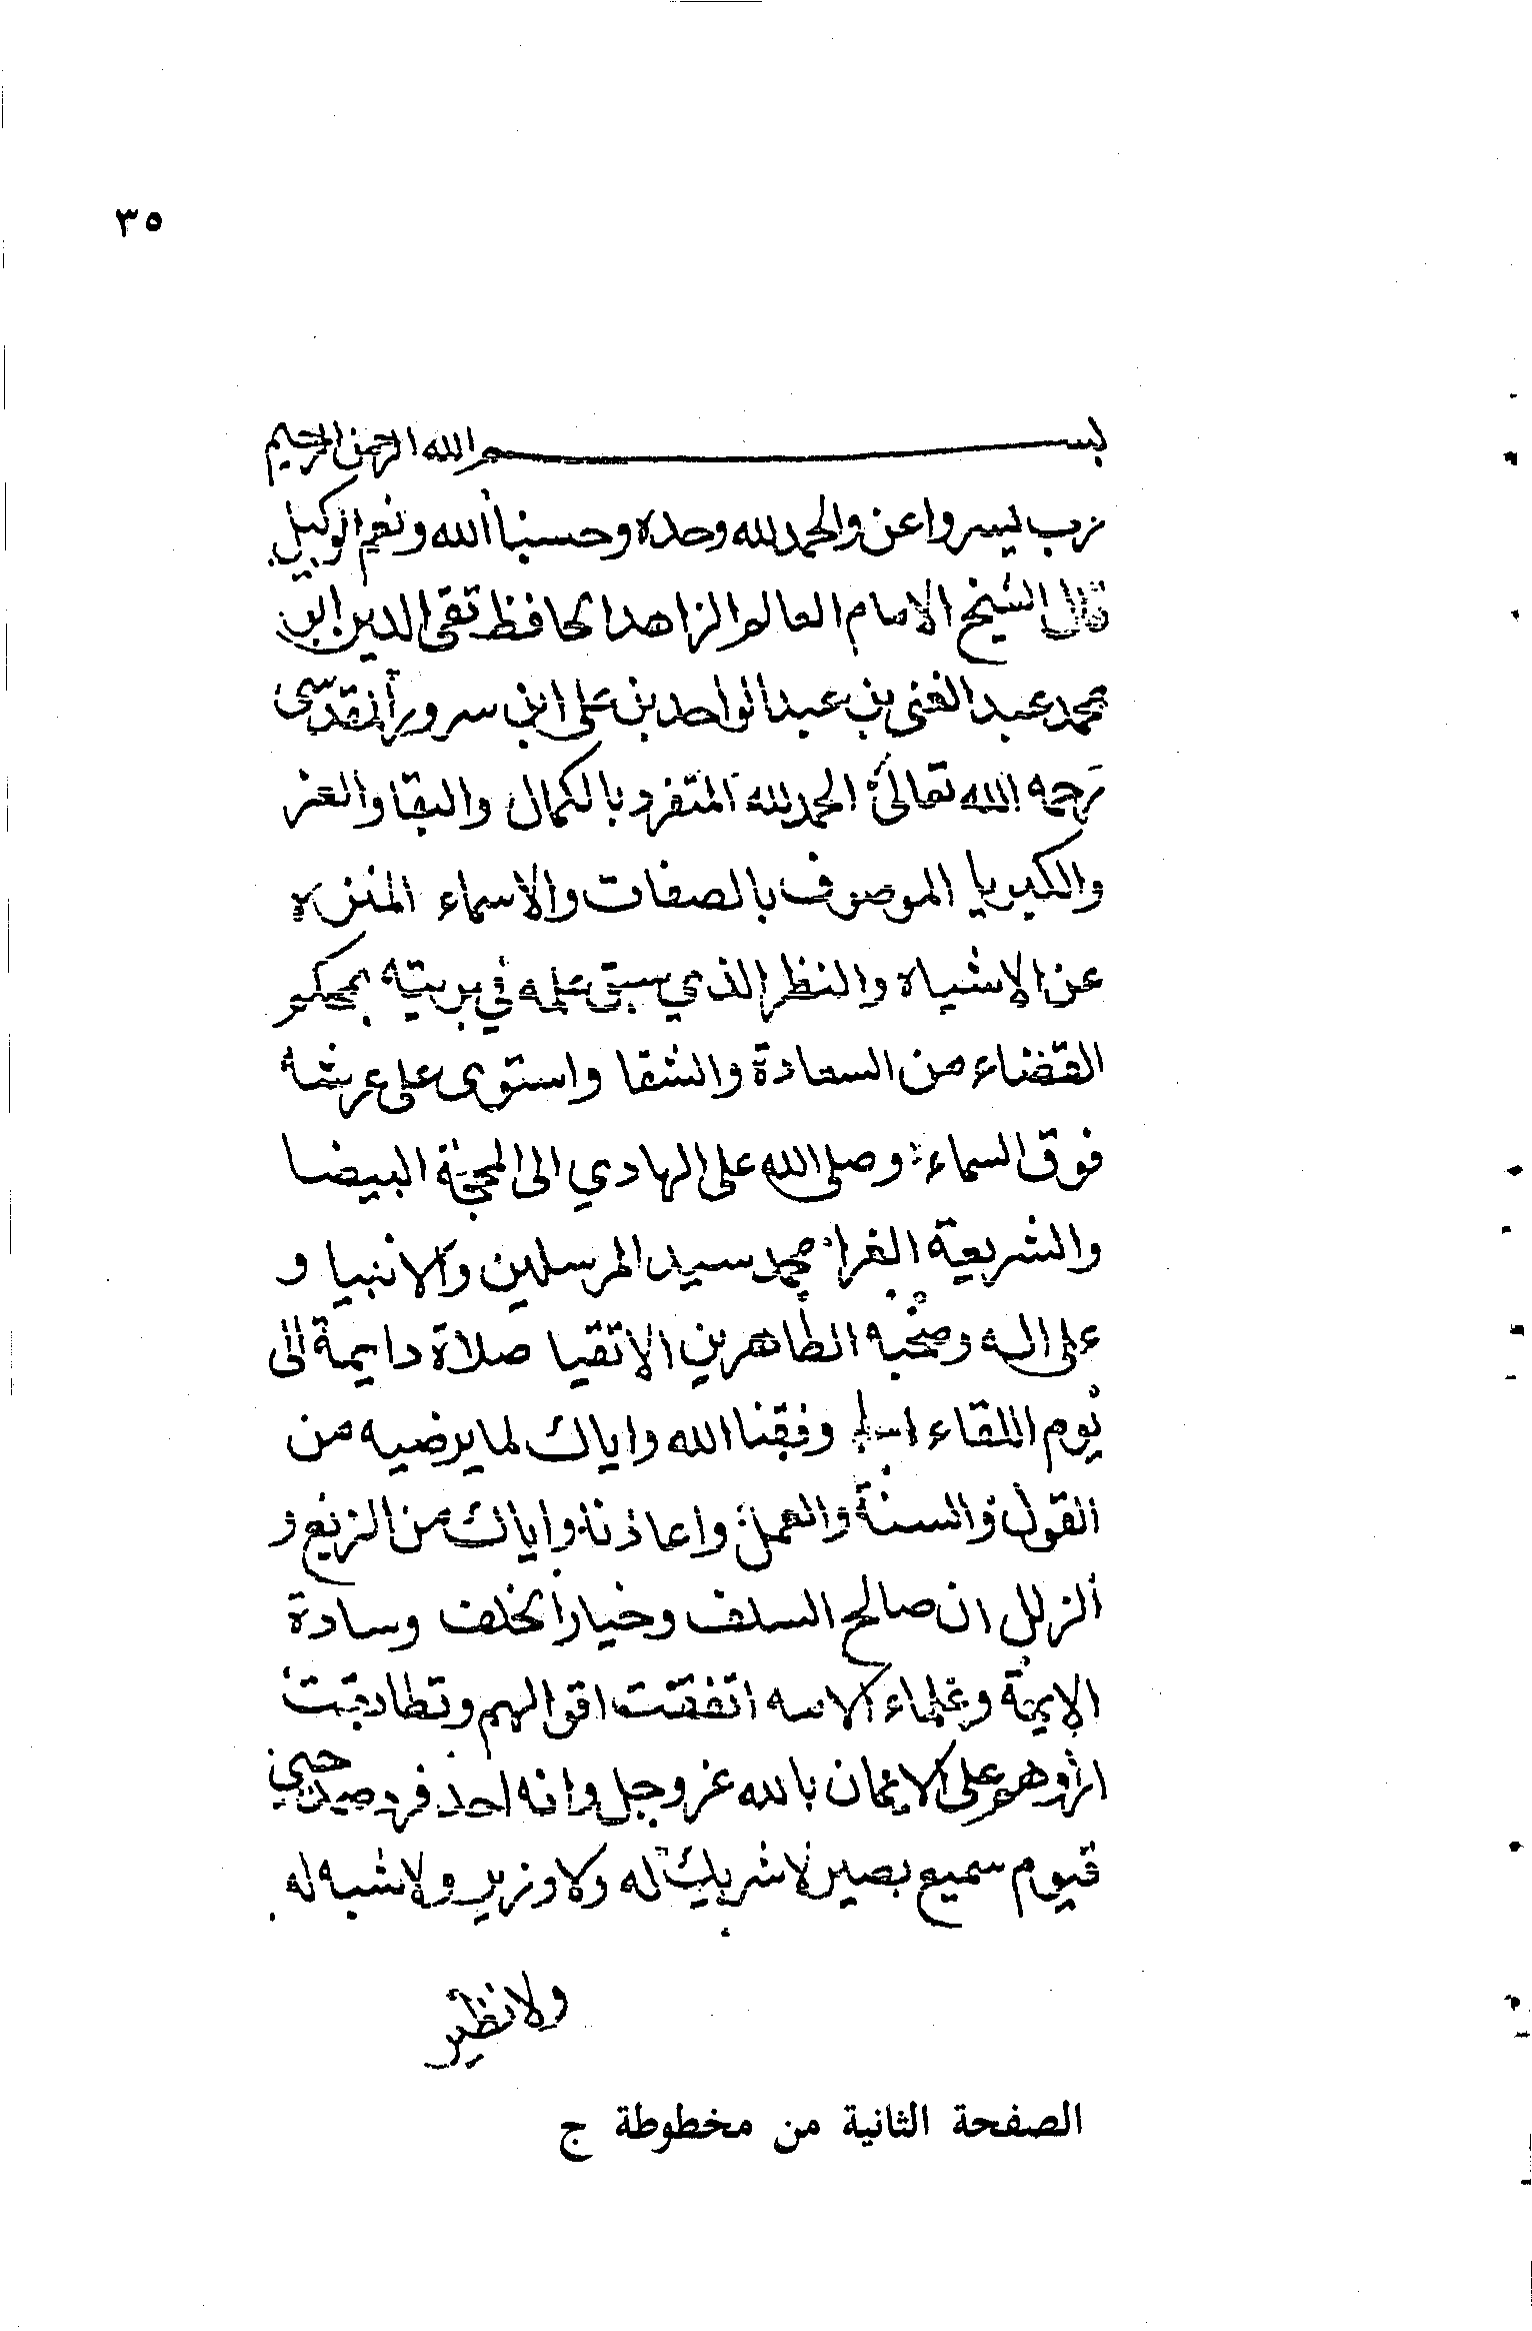 ٣٥
بسم الله الرحمن الرحيم
رب يسر واعن والحمد لله وحده وحسبنا الله ونعم الوكيل
قال الشيخ الامام العالم الزاهد الحافظ تقى الدين ابو
محمد عبد الغنى بن عبد الواحد بن على ابن سرور المقدسى
رحمه الله تعالى الحمد لله المتفرد بالكمال والبقا والعز
والكبريا الموصوف بالصفات والاسماء المنزه
عن الاشباه والنظر الذي سبق علمه في بريته بمحكم
القضاء من السعادة والشقا واستوى على عرشه
فوق السماء وصلى الله على الهادي الى المحجة البيضا
والشريعة الغرا محمد سيد المرسلين والانبيا و
على اله وصحبه الطاهرين الاتقيا صلاة دايمة الى
يوم اللقاء وفقنا الله واياك لما يرضيه من
القول والسنة والعمل واعاذنا واياك من الزيغ و
الزلل ان صالح السلف وخيار الخلف وسادة
الايمة وعلماء الامه اتفقت اقوالهم وتطابقت
اراوهم على الايمان بالله عز وجل وانه احد فرد صمد حي
قيوم سميع بصير لا شريك له ولا وزير ولا شبه له
ولا نظير
الصفحة الثانية من مخطوطة ج